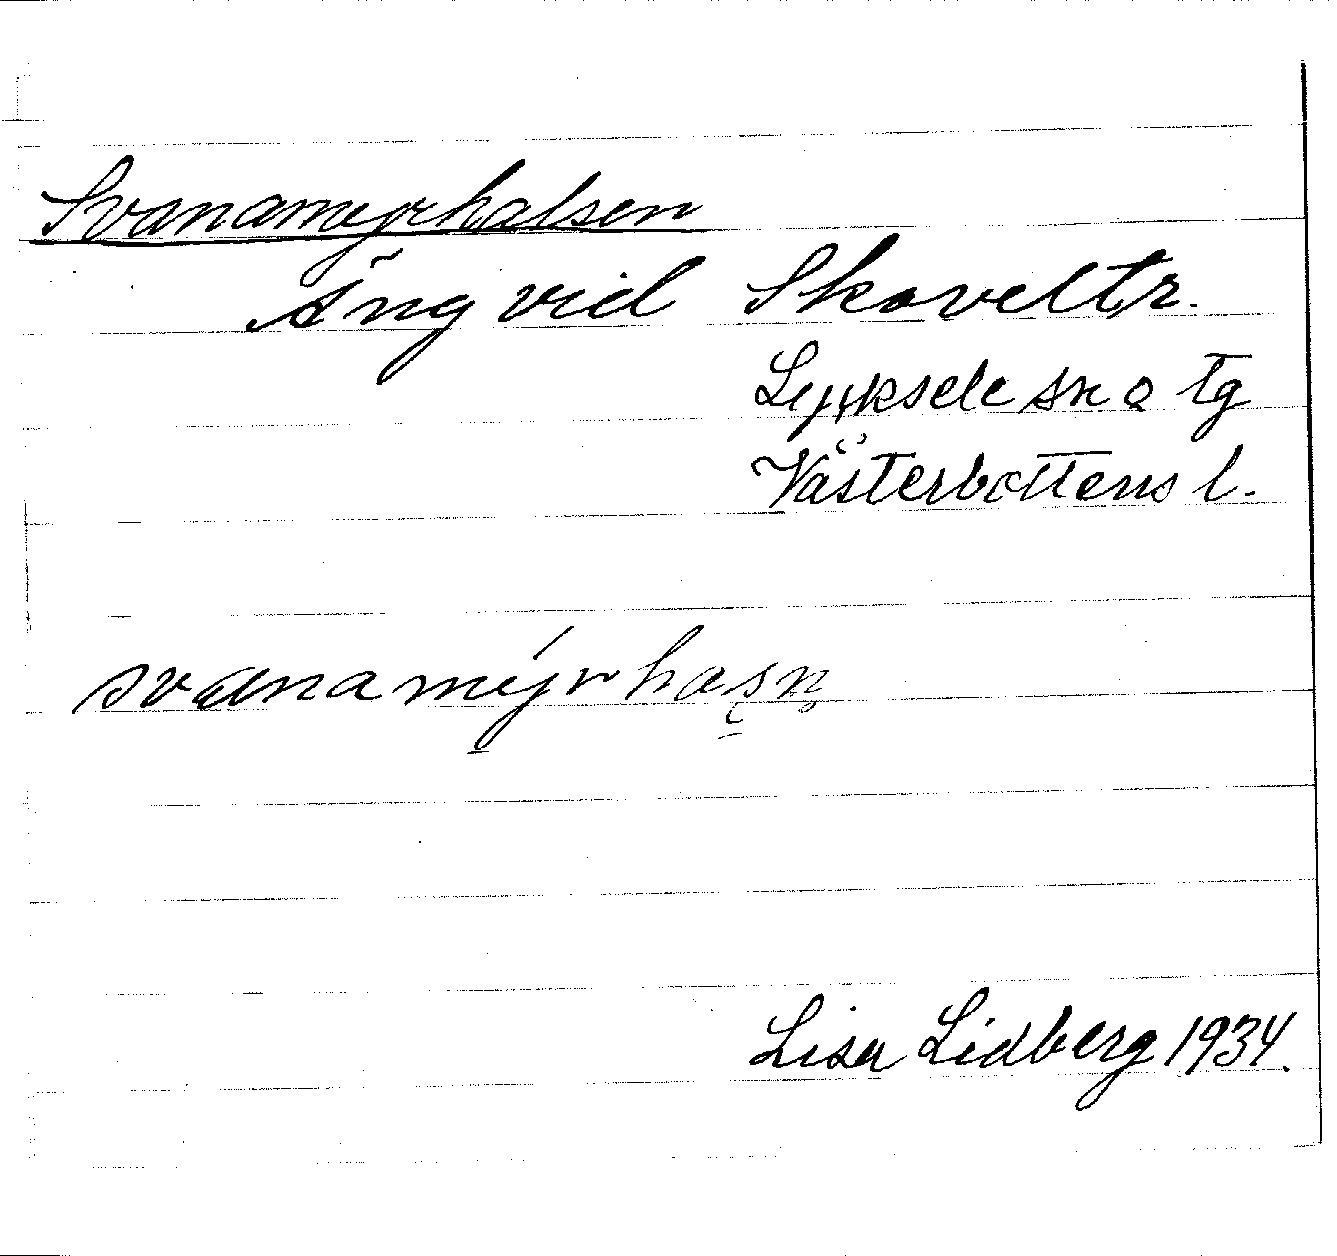 Svanamyrhalsen
Äng vid Skoveltr.
Lycksele sn o tg
Västerbottens l.
svanamýrhasn
Lisa Lidberg 1934.